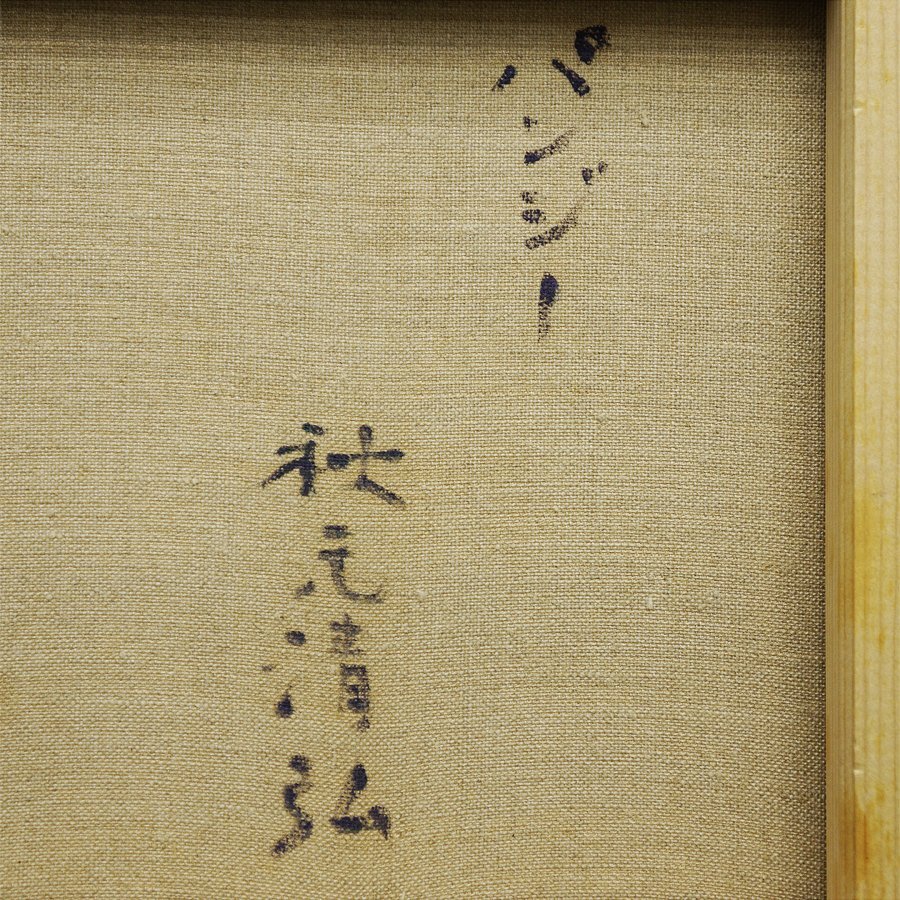 パンジー
秋元清弘